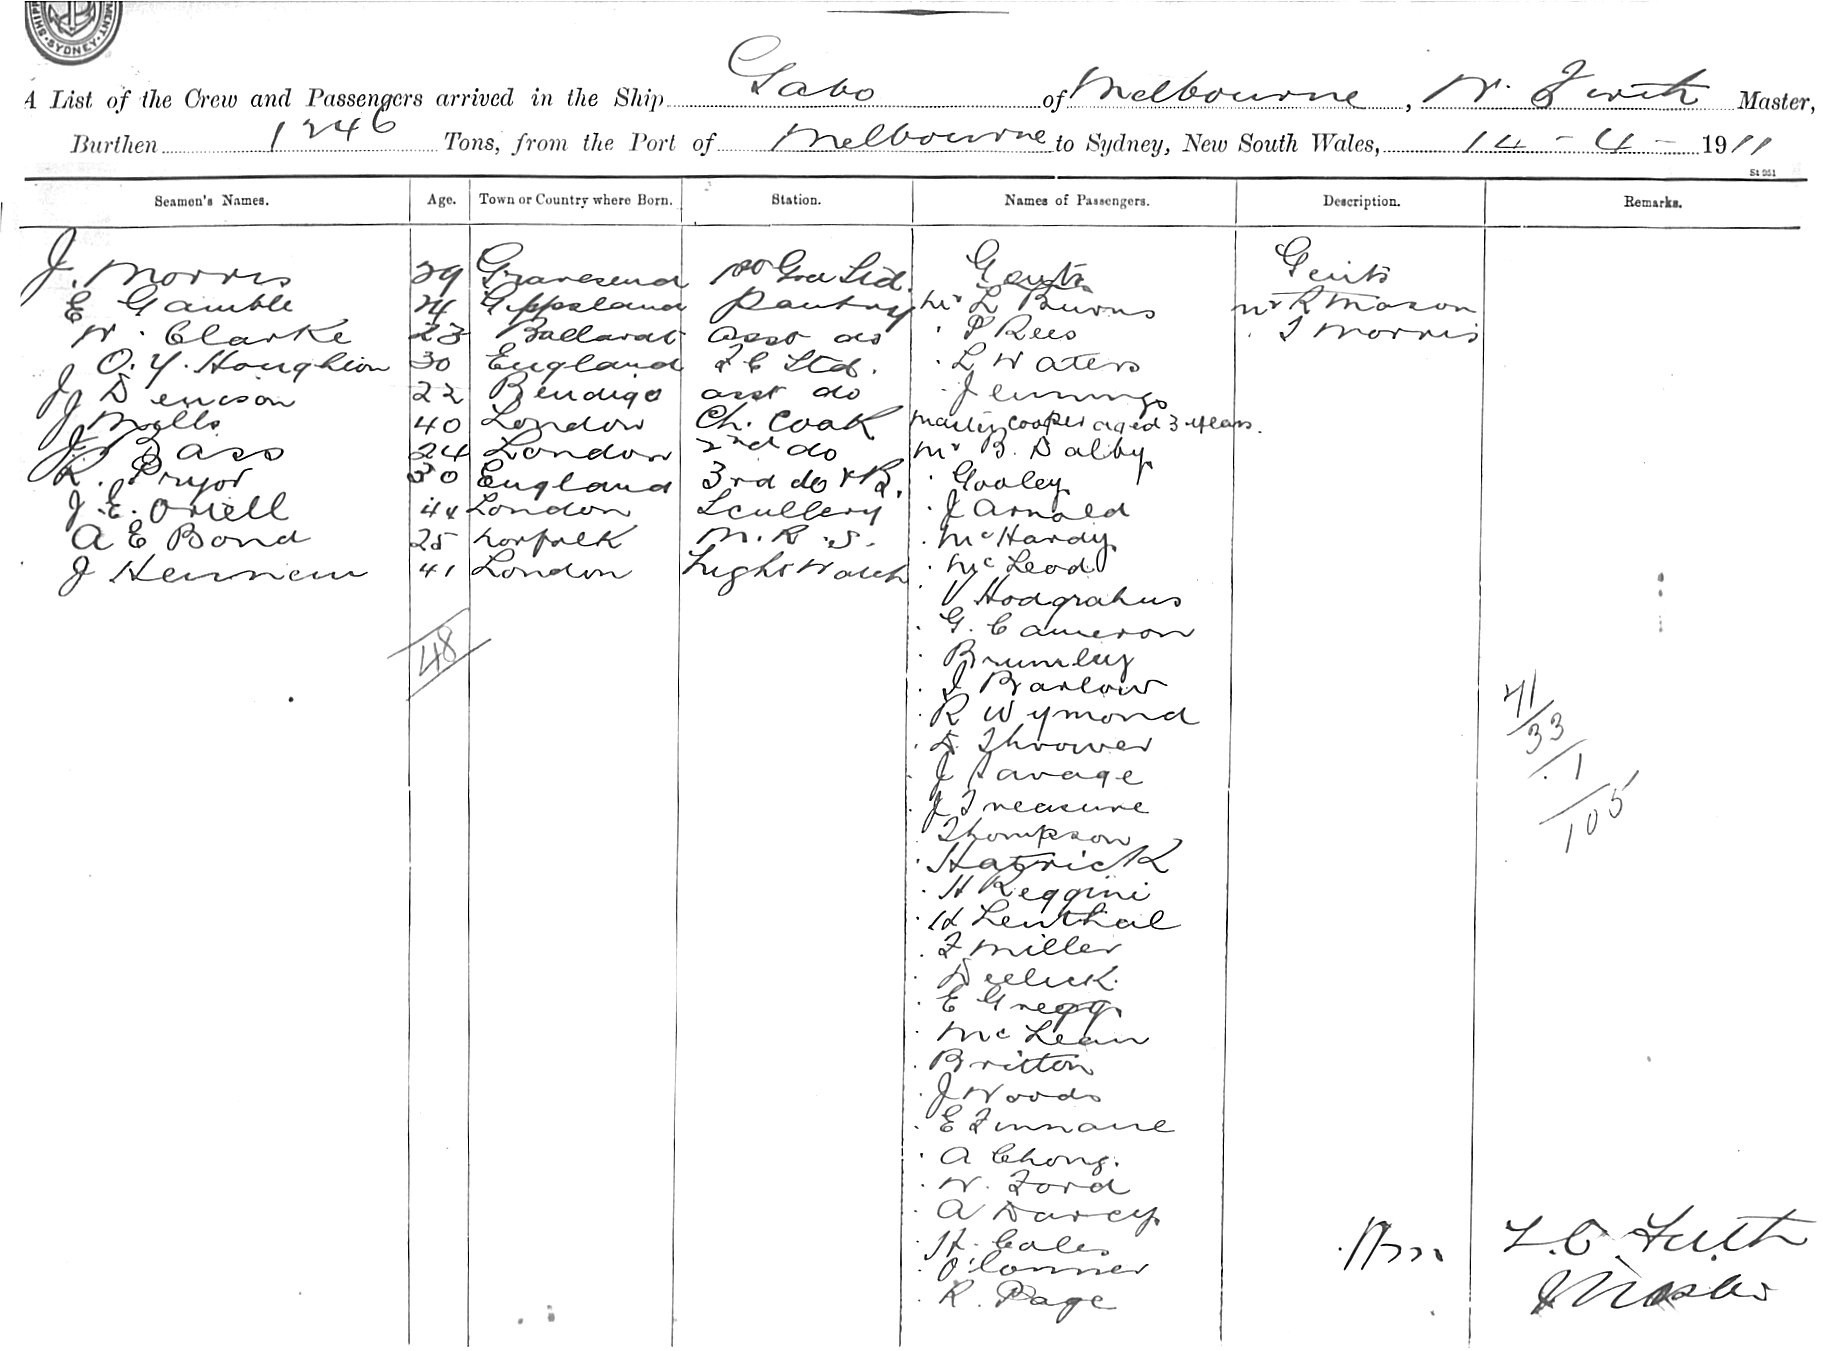 SYDNEY
A List of the Crew and Passengers arrived in the Ship Gabo of Melbourne, W. Firth Master,
Burthen 1246 Tons, from the Port of Melbourne to Sydney, New South Wales, 14 - 4 - 1911
St 951
Seamen's Names. Age. Town or Country where Born. Station. Names of Passengers. Description. Remarks.
J. Morris 29 Gravesend Std. Gents Gents
E Gamble Gippsland Pantry Mr L Burns Mr R Mason
W. Clarke 23 Ballarat asst do P Rees J Morris
O. Y. Houghton 30 England F C Std. L Waters
J Denison 22 Bendigo asst do Jennings
J Mills 40 London Ch. Cook Master Cooper aged 3 years.
J Bass 24 London 2nd do Mr B. Dalby
R. Pryor 30 England 3rd do & B. Gooley
J. E. Oriell 44 London Scullery J Arnold
A E Bond 25 Norfolk M. R. S. McHardy
J 41 London Night Watch McLeod
V Hodgrahus
G. Cameron
48 Brumley
J Barlow
R Wymond 41
D. Thrower 33
J Savage 1
J Treasure 105
Thompson
Hatrick
H Reggini
H Lenthal
F Miller
E Gregg
McLean
Britton
J Woods
E Finnane
A Chong.
W. Ford
A Darcy
H. Cales
O'Conner
R. Page Master